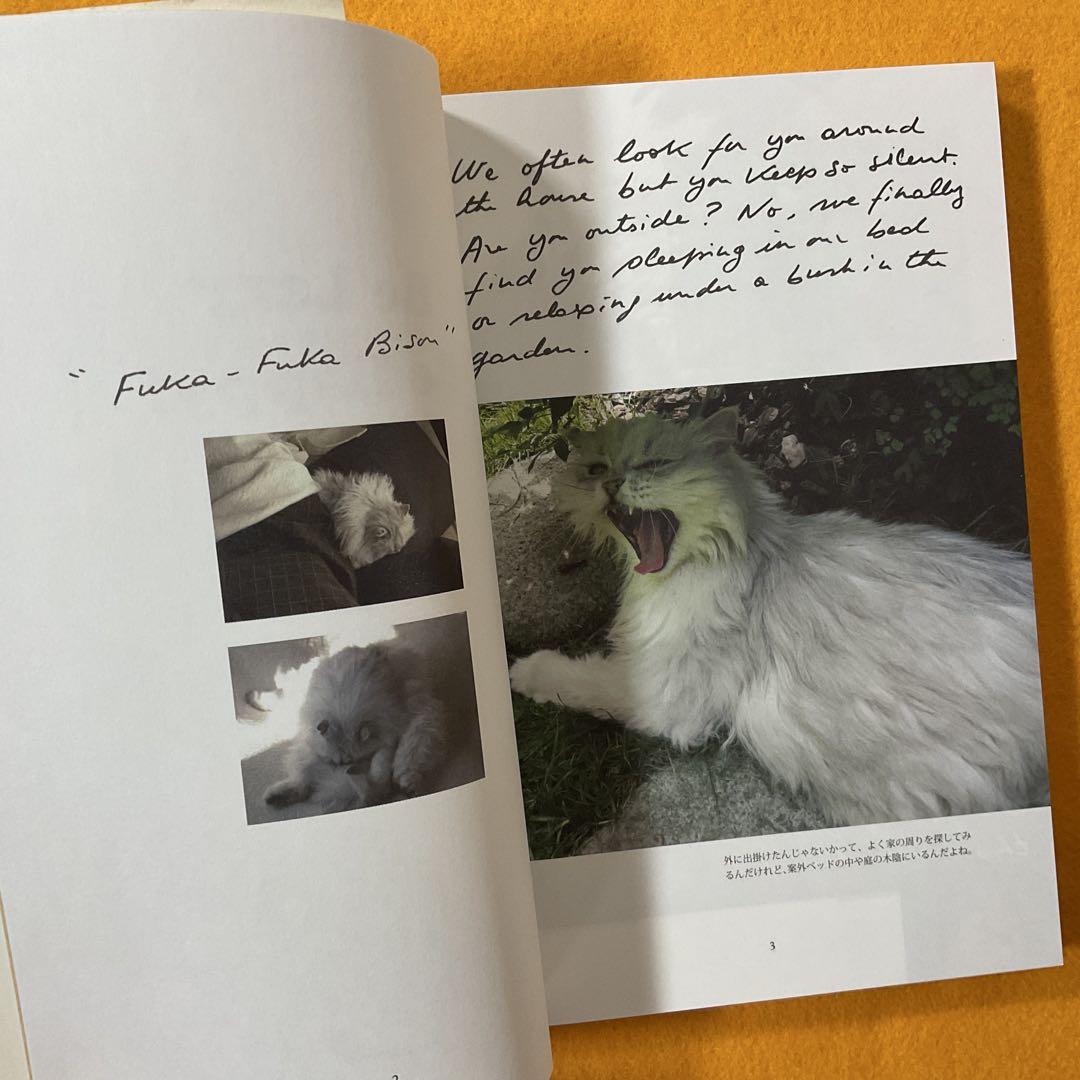 "Fuka-Fuka Bison"
2
We often look for you around
the house but you keep so silent.
Are you outside? No, we finally
find you sleeping in our bed
or relaxing under a bush in the
garden.
外に出掛けたんじゃないかって、よく家の周りを探してみ
るんだけれど、案外ベッドの中や庭の木陰にいるんだよね。
3